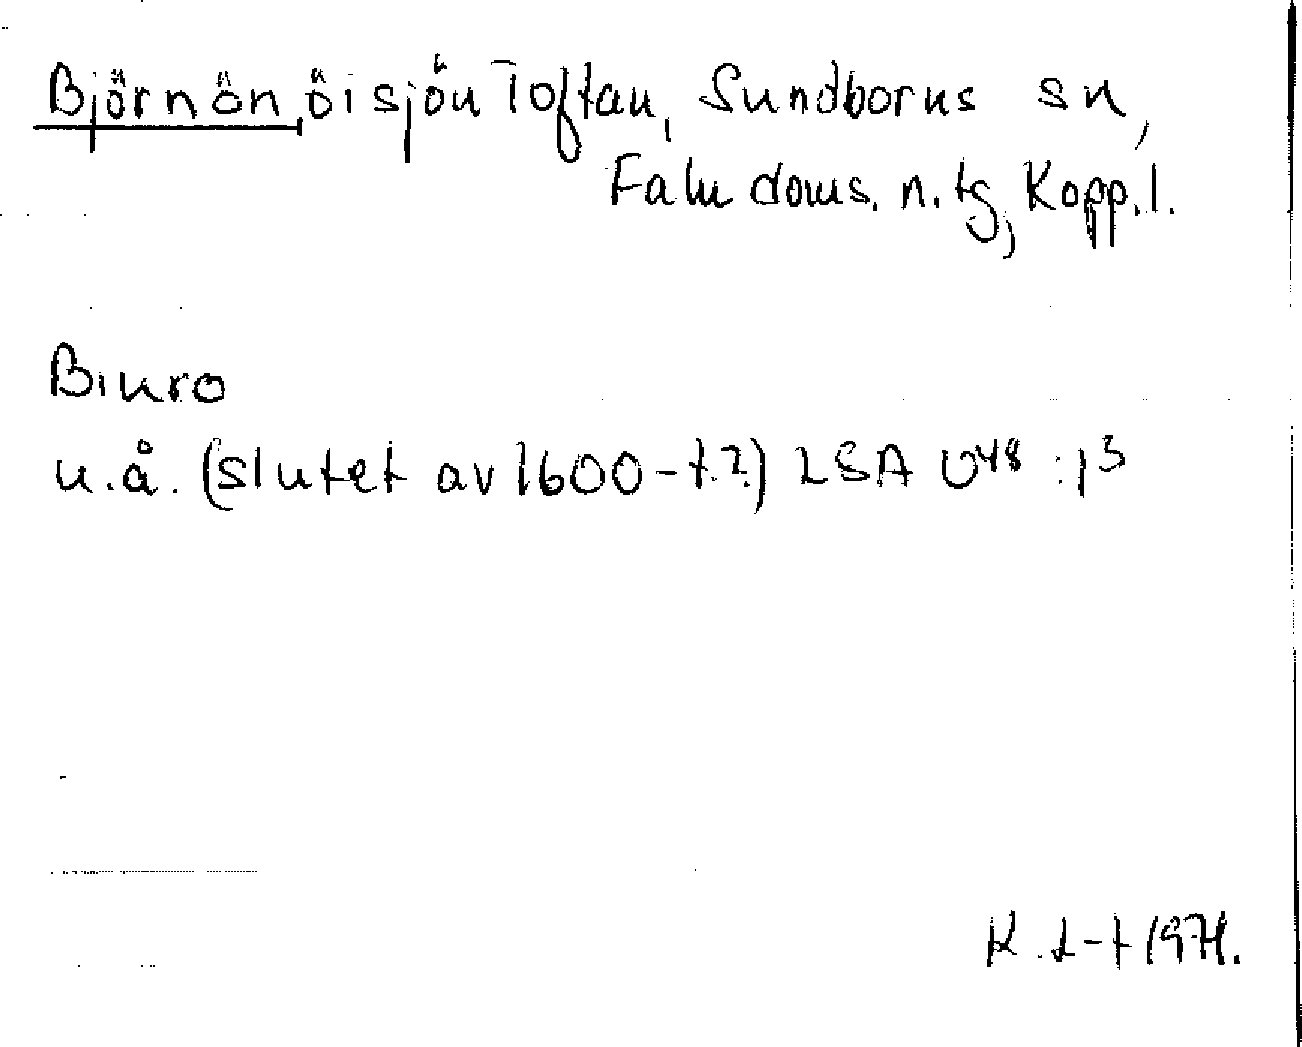 Björnön, ö i sjön Toftan, Sundborns sn,
Falu doms. n. tg, Kopp. l.
Biuro
u.å. (slutet av 1600-t.?) LSA U48:13
K. L-t 1971.